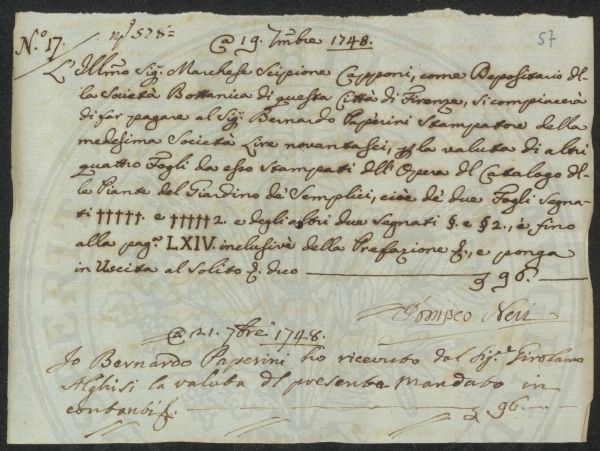 N.° 17.
57
A 19. 7mbre 1748.
L'Illmo Sig. Marchese Scipione Capponi, come Depositario del-
la Società Bottanica di questa Città di Firenze, si compiacerà
di far pagare al Sig. Bernardo Paperini Stampatore della
medesima Società Lire novantasei, p la valuta di altri
quattro Fogli da esso Stampati dell'Opera del Catalogo del-
le Piante del Giardino de' Semplici, cioè de' due Fogli Segna-
ti †††††. e ††††† 2. e degli altri due Segnati §. e § 2., è fino
alla pag.a LXIV. inclusive della Prefazione &., e ponga
in Uscita al Solito &. dico 96.
Pompeo Neri
A 21. 7bre 1748.
Io Bernardo Paperini ho ricevuto dal Sig.r Girolamo
Alghisi la valuta del presente mandato in
contanti &. 96.